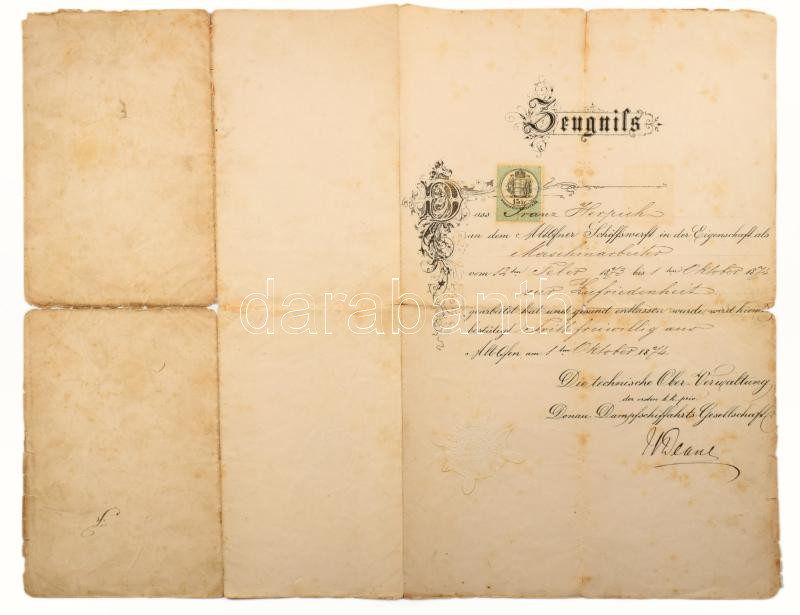 Zeugniſs
Dass Franz Herpich
an dem Altofner Schiffswerft in der Eigenschaft als
Maschinarbeiter
vom 12ten Feber 1873 bis 1ten Oktober 1874
zur Zufriedenheit
gearbeitet hat und gesund entlassen wurde, wird hiemit
bestätigt. freiwillig aus
Altofen am 1ten Oktober 1874
Die technische Ober-Verwaltung
der ersten k.k. priv.
Donau-Dampfschiffahrts-Gesellschaft
15
darabanth